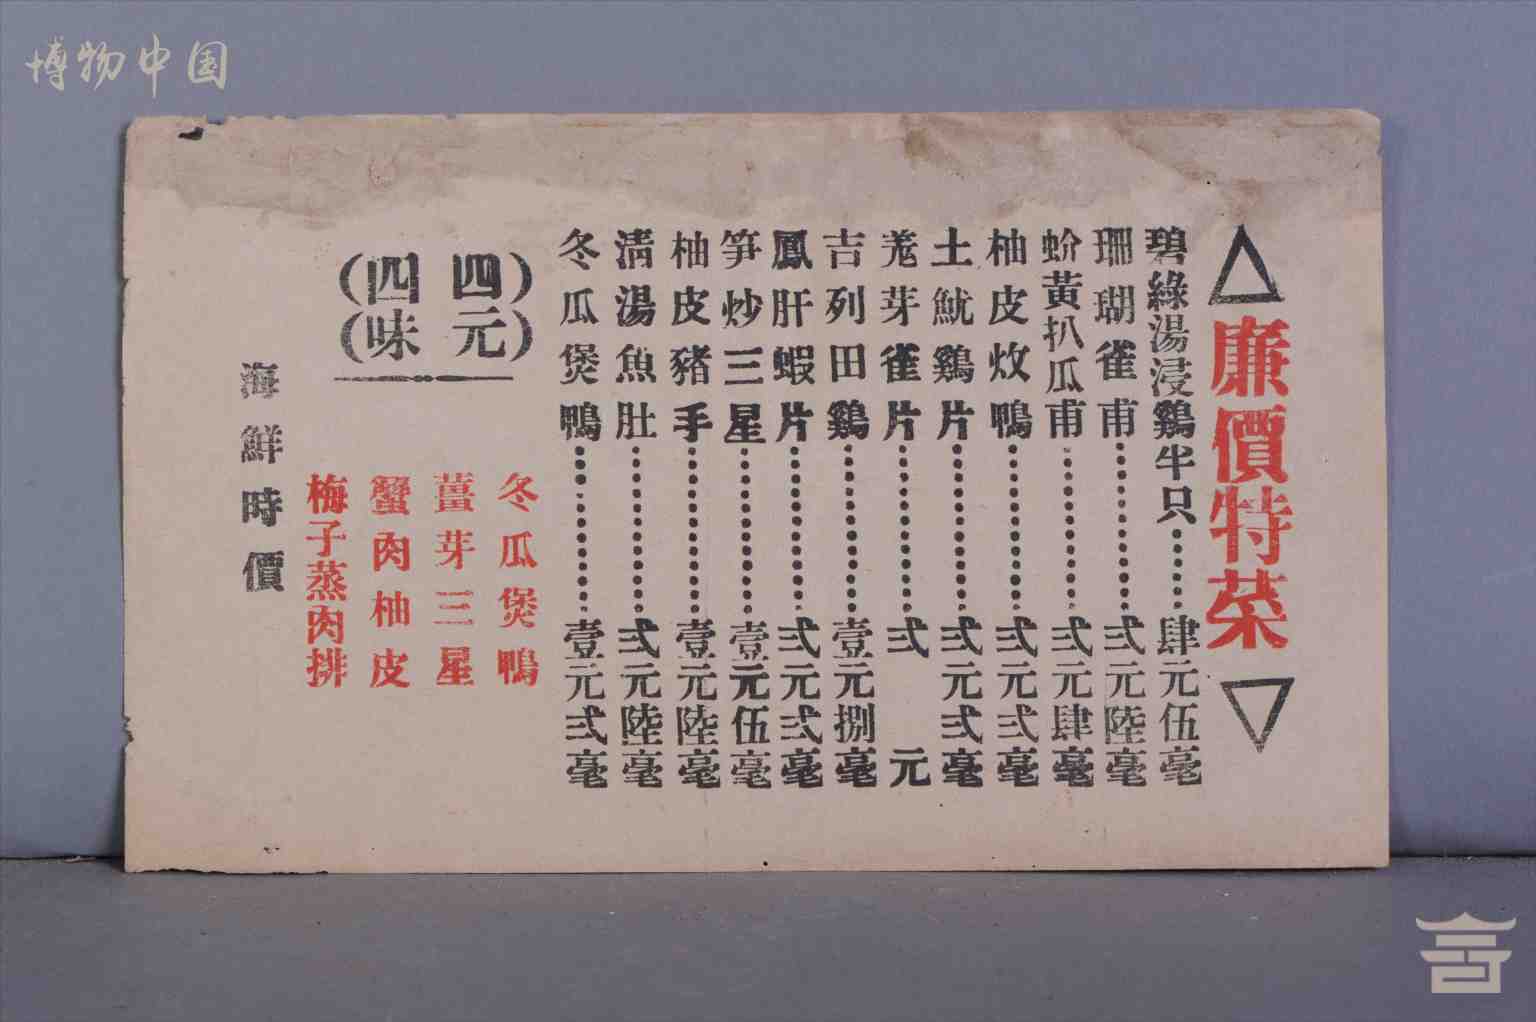 博物中国
廉價特菜
碧綠湯浸鷄半只 肆元伍毫
珊瑚雀甫 弍元陸毫
蚧黃扒瓜甫 弍元肆毫
柚皮炆鴨 弍元弍毫
土魷鷄片 弍元弍毫
羗芽雀片 弍元
吉列田鷄 壹元捌毫
鳳肝蝦片 弍元弍毫
笋炒三星 壹元伍毫
柚皮豬手 壹元陸毫
清湯魚肚 弍元陸毫
冬瓜煲鴨 壹元弍毫
四元
四味
冬瓜煲鴨
薑芽三星
蟹肉柚皮
梅子蒸肉排
海鮮時價